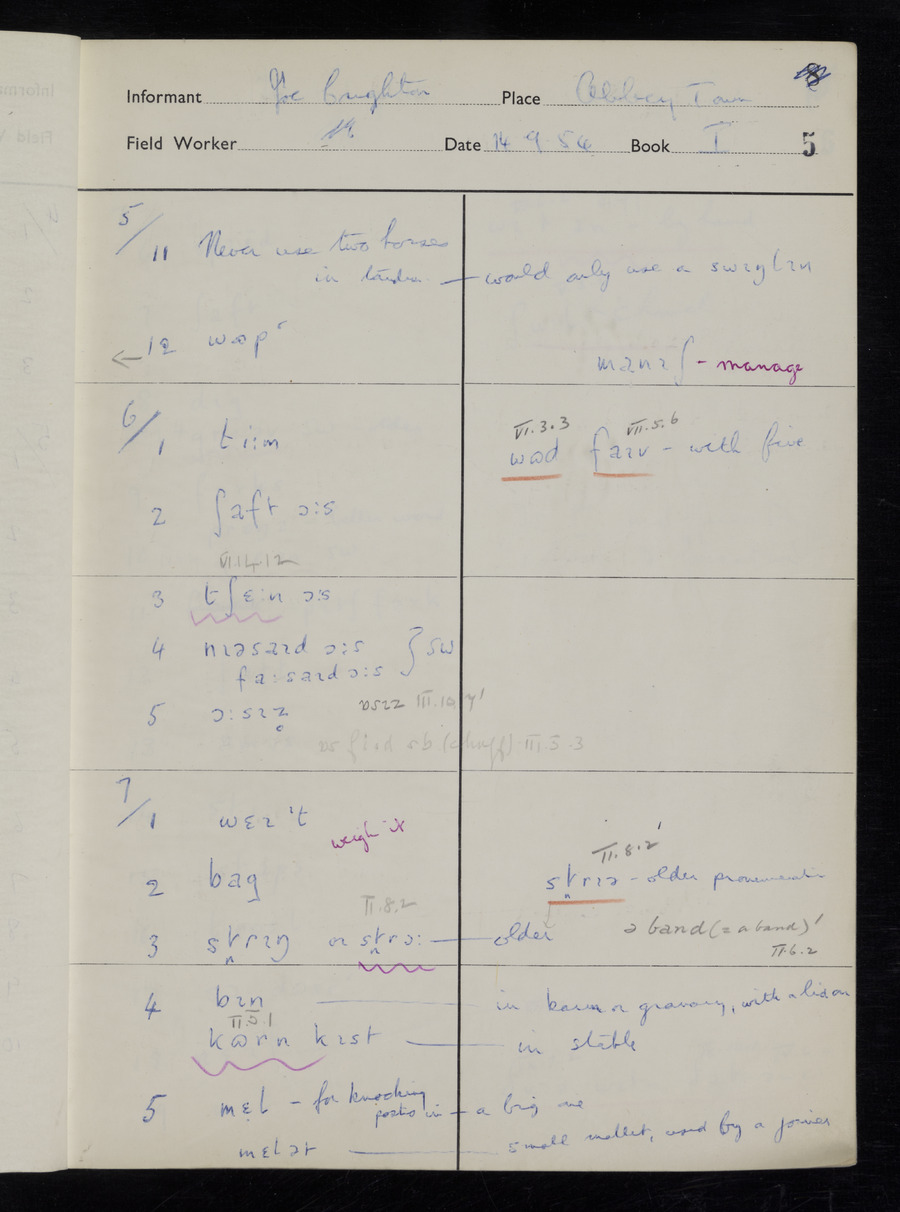 8
Informant Joe Place Abbey Town
Field Worker Date 14 9 54 Book I 5
5/11 Never use two horses
in — would only use a swɪŋlɪn
← 12 wɒp'
manɪʃ - manage
6/1 ti:m
VI.3.3 VII.5.6
wɒd faɪv - with five
2 ʃaft ɔ:s
VI.14.12
3 tʃɛ:n ɔ:s
4 nɪəsaɪd ɔ:s } sw
fa:saɪd ɔ:s
5 ɔ:sɪz̥ ɒsɪz III.10.7'
(chaff) III.5.3
7/1 wɛɪ 't weigh it
2 bag
II.8.2'
strɪə - older pronunciation
II.8.2
3 strɪŋ or strɔ: — older
ə band (= a band)'
II.6.2
4 bɪn — in barn or granary, with a lid on
II.5.1
kɒrn kɪst — in stable
5 mɛl - for knocking
posts in — a big one
mɛlət — small mallet, used by a joiner